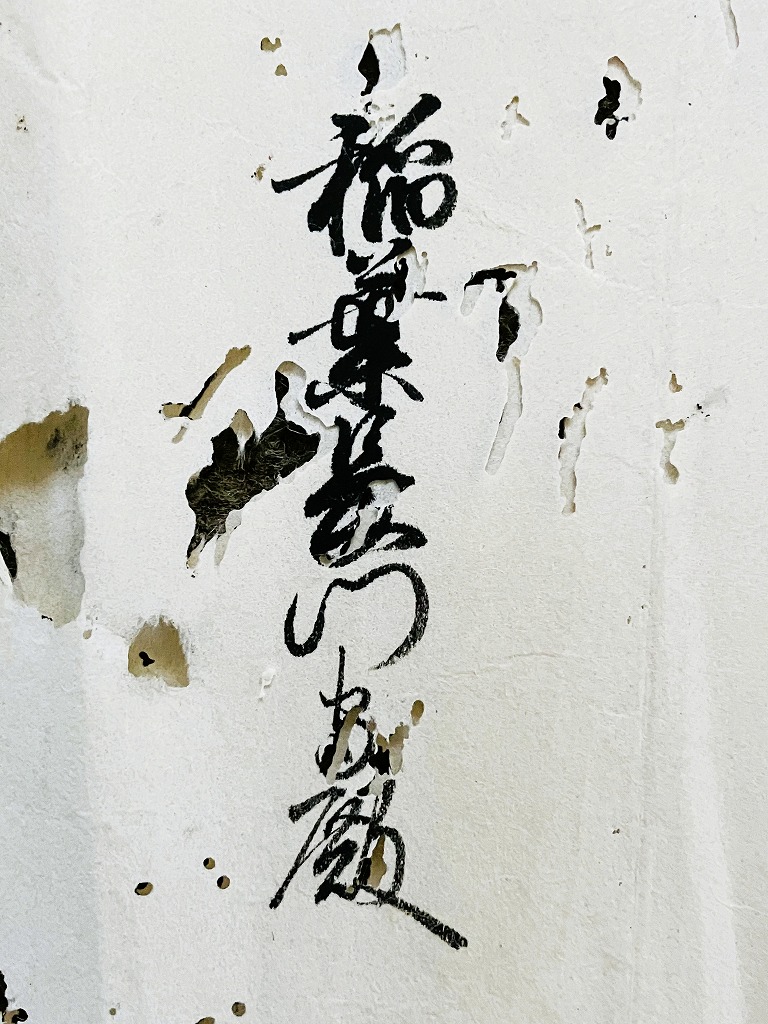 稲葉長門守殿